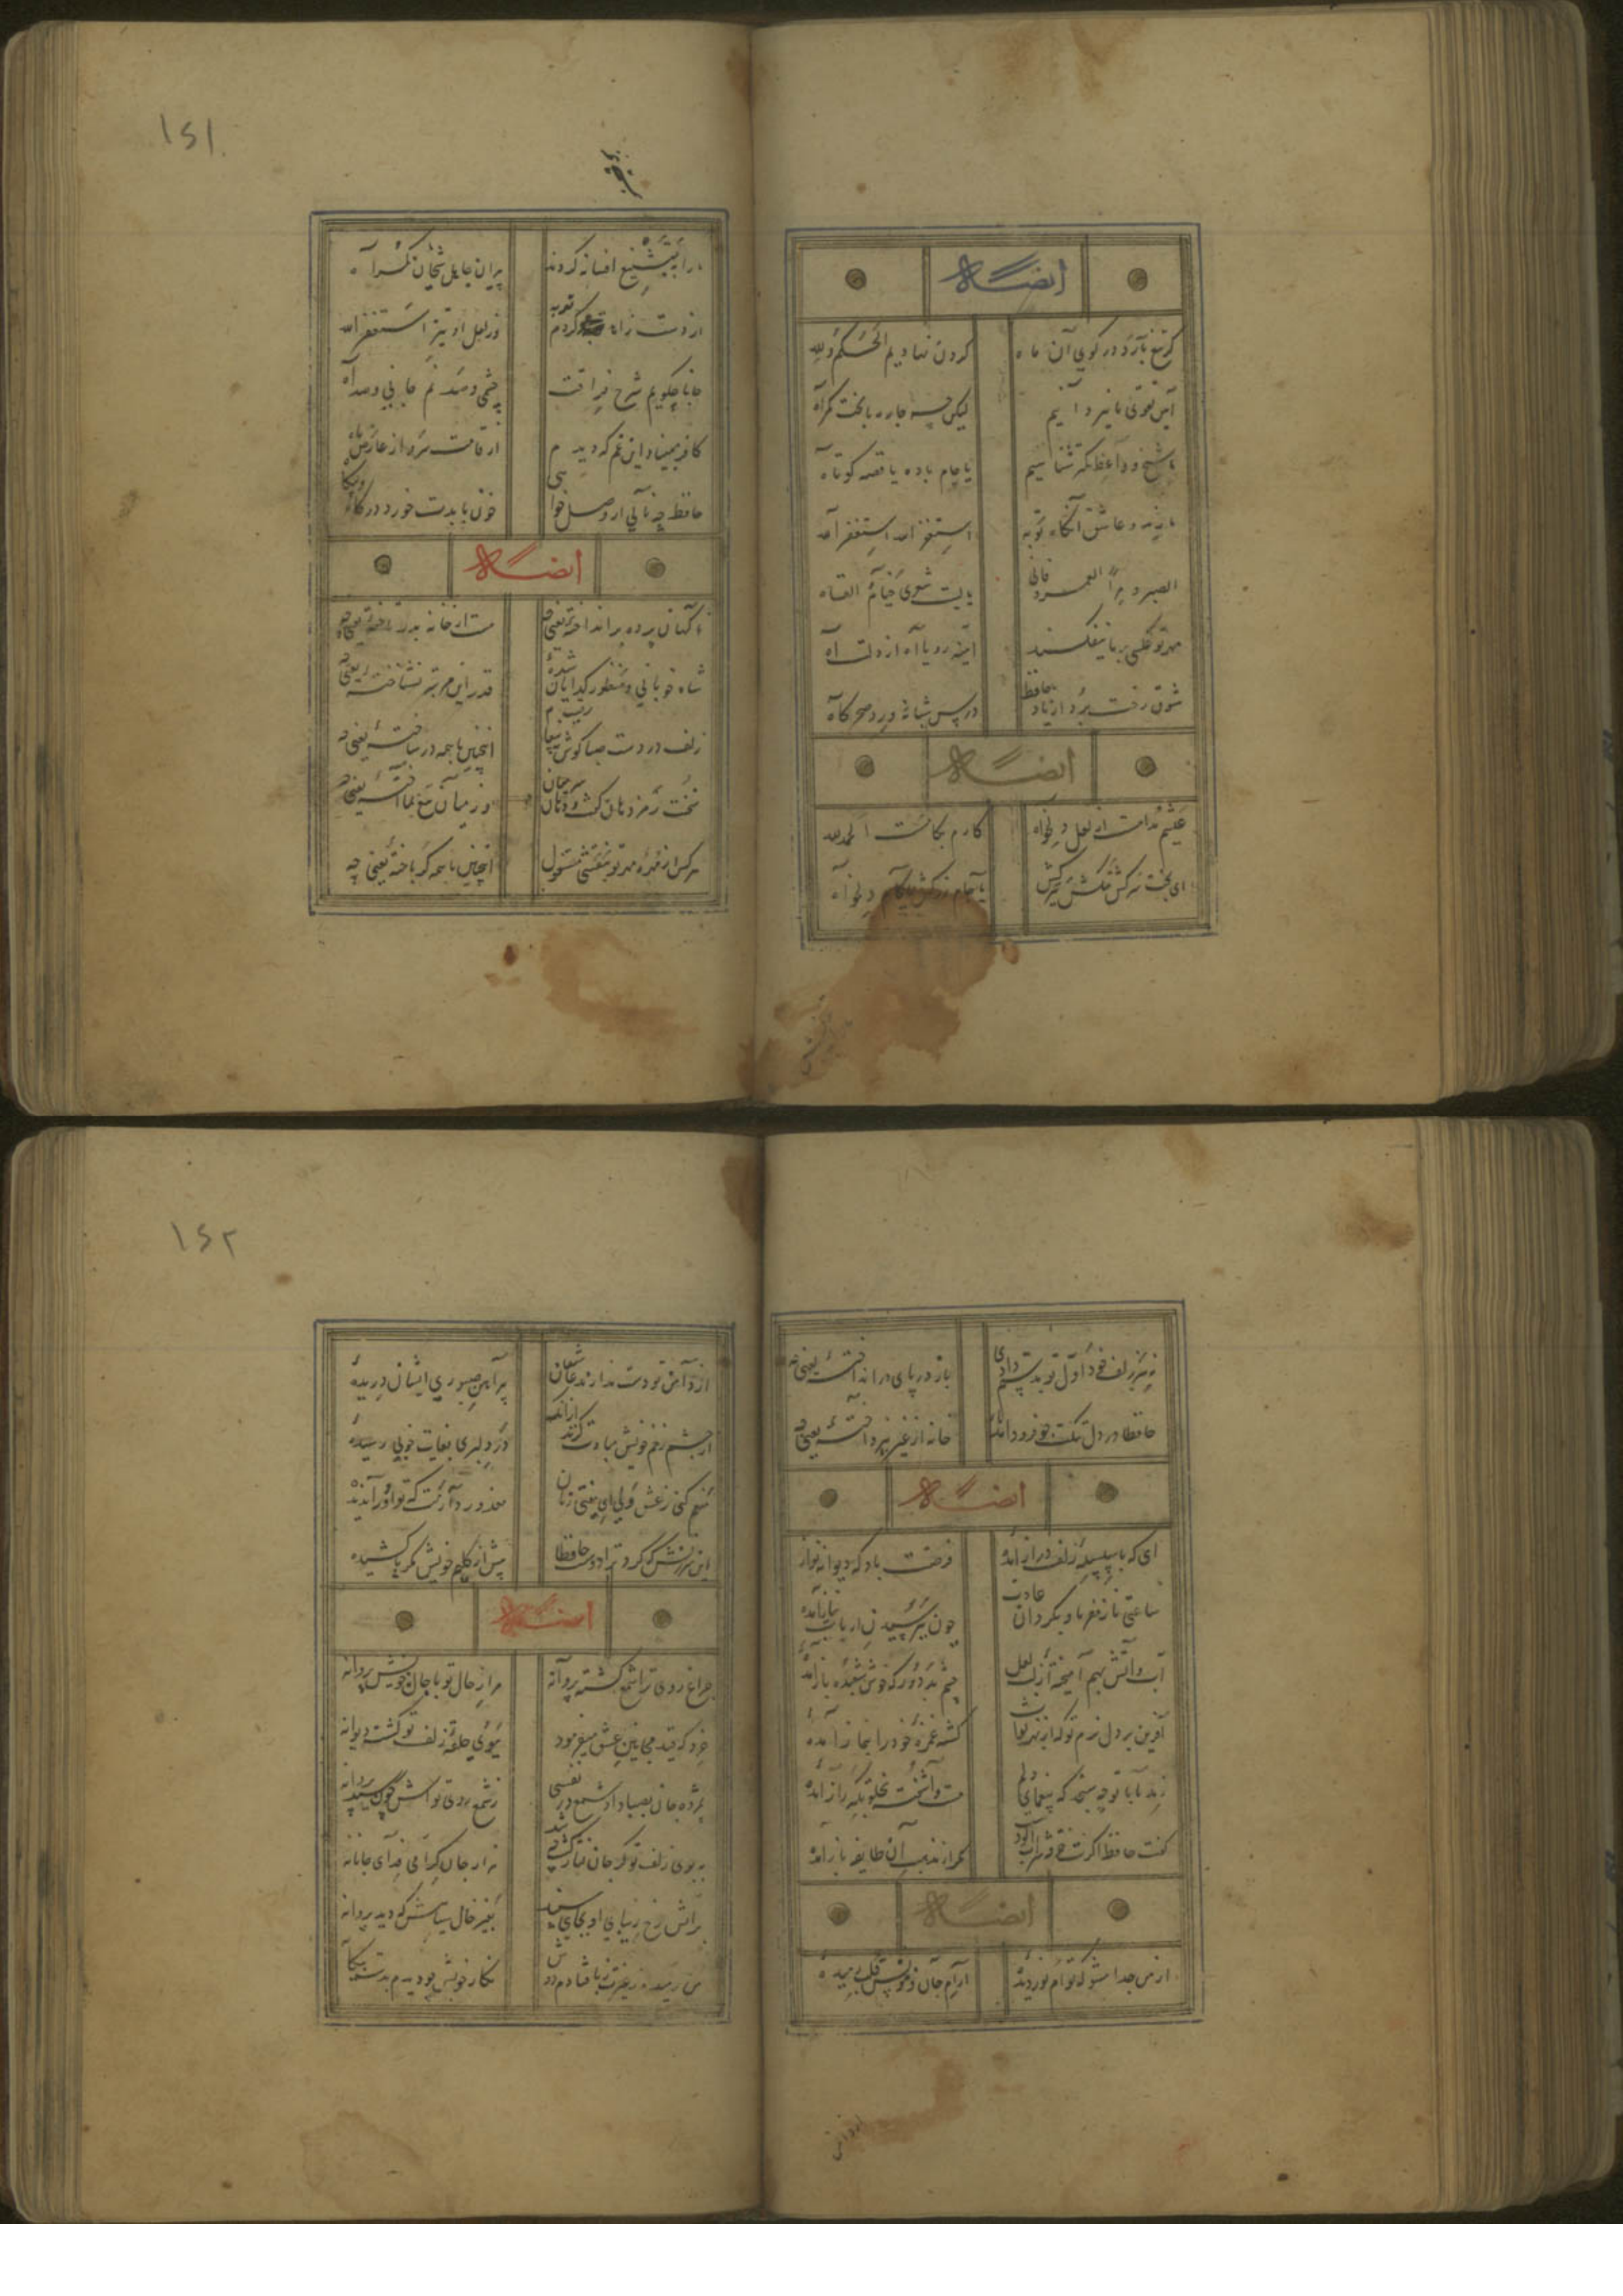 ایضاً له
گر تیغ بارد در کوی آن ماه    گردن نهادیم الحکم لله
آیین تقوی ما نیز دانیم    لیکن چه چاره با بخت گمراه
ما شیخ و واعظ کمتر شناسیم    یا جام باده یا قصه کوتاه
ما رند و عاشق آنگاه توبه    استغفر الله استغفر الله
الصبر مر العمر فانی    یا لیت شعری حتام القاه
مهر تو عکسی بر ما نیفکند    آینه رویا آه از دلت آه
شوق رخت برد از یاد حافظ    درس شبانه ورد سحرگاه
ایضاً له
عیشم مدامست از لعل دلخواه    کارم بکامست الحمد لله
ای بخت سرکش تنگش ببر کش    با جام زر کش با کام دلخواه
۱۶۱
ما را بتشنیع افسانه کردند    پیران جاهل شیخان گمراه
از دست زاهد توبه کردم    وز لعل او نیز استغفر الله
جانا چگویم شرح فراقت    چشمی و صد نم جانی و صد آه
کافر مبیناد این غم که دیدم    از قامت سرو از عارض ماه
حافظ چه نالی ار وصل خواهی    خون بایدت خورد در گاه و بیگاه
ایضاً له
ناگهان پرده بر انداخته یعنی چه    مست از خانه بدر تاخته یعنی چه
شاه خوبانی و منظور گدایان شده    قدر این مرتبه نشناخته یعنی چه
زلف در دست صبا گوش به پیغام رقیب    اینچنین با همه در ساخته یعنی چه
سخنت رمز دهان گفت و کمر سر میان    وز میان تیغ بما آخته یعنی چه
هر کس از مهره مهر تو بنقشی مشغول    اینچنین با همه کژ باخته یعنی چه
نه سر زلف خود اول تو بدستم دادی    باز در پای در انداخته یعنی چه
حافظا در دل تنگت چو فرود آمد    خانه از غیر نپرداخته یعنی چه
ایضاً له
ای که با سلسله زلف دراز آمده    فرصتت باد که دیوانه نواز آمده
ساعتی ناز مفرما و بگردان عادت    چون بپرسیدن ارباب نیاز آمده
آب و آتش بهم آمیخته از لب لعل    چشم بد دور که خوش شعبده باز آمده
آفرین بر دل نرم تو که از بهر ثواب    کشته غمزه خود را بنماز آمده
زهد ما با تو چه سنجد که بیغمای دلم    مست و آشفته بخلوتگه راز آمده
گفت حافظ دگرت خرقه شراب آلودست    مگر از مذهب آن طایفه باز آمده
ایضاً له
از من جدا مشو که توام نور دیده    آرام جان و مونس قلب رمیده
۱۶۲
از دامن تو دست ندارند عاشقان    پیراهن صبوری ایشان دریده
از چشم زخم خویش مبادت گزند از آنک    در دلبری بغایت خوبی رسیده
منعم کنی ز عشق ولی ای مفتی زمان    معذور دارمت که تو او را ندیده
این سرزنش که کرد ترا دوست حافظا    بیش از گلیم خویش مگر پا کشیده
ایضاً له
چراغ روی ترا شمع گشته پروانه    مرا ز حال تو با حال خویش پروا نه
خرد که قید مجانین عشق میفرمود    ببوی حلقه زلف تو گشته دیوانه
بمژده جان بصبا داد شمع در نفسی    ز شمع روی تواش چون رسید پروانه
ببوی زلف تو گر جان بباد رفت چه شد    هزار جان گرامی فدای جانانه
بر آتش رخ زیبای او بجای سپند    بغیر خال سیاهش که دید به دانه
من رمیده ز غیرت ز پا فتادم دوش    نگار خویش چو دیدم بدست بیگانه